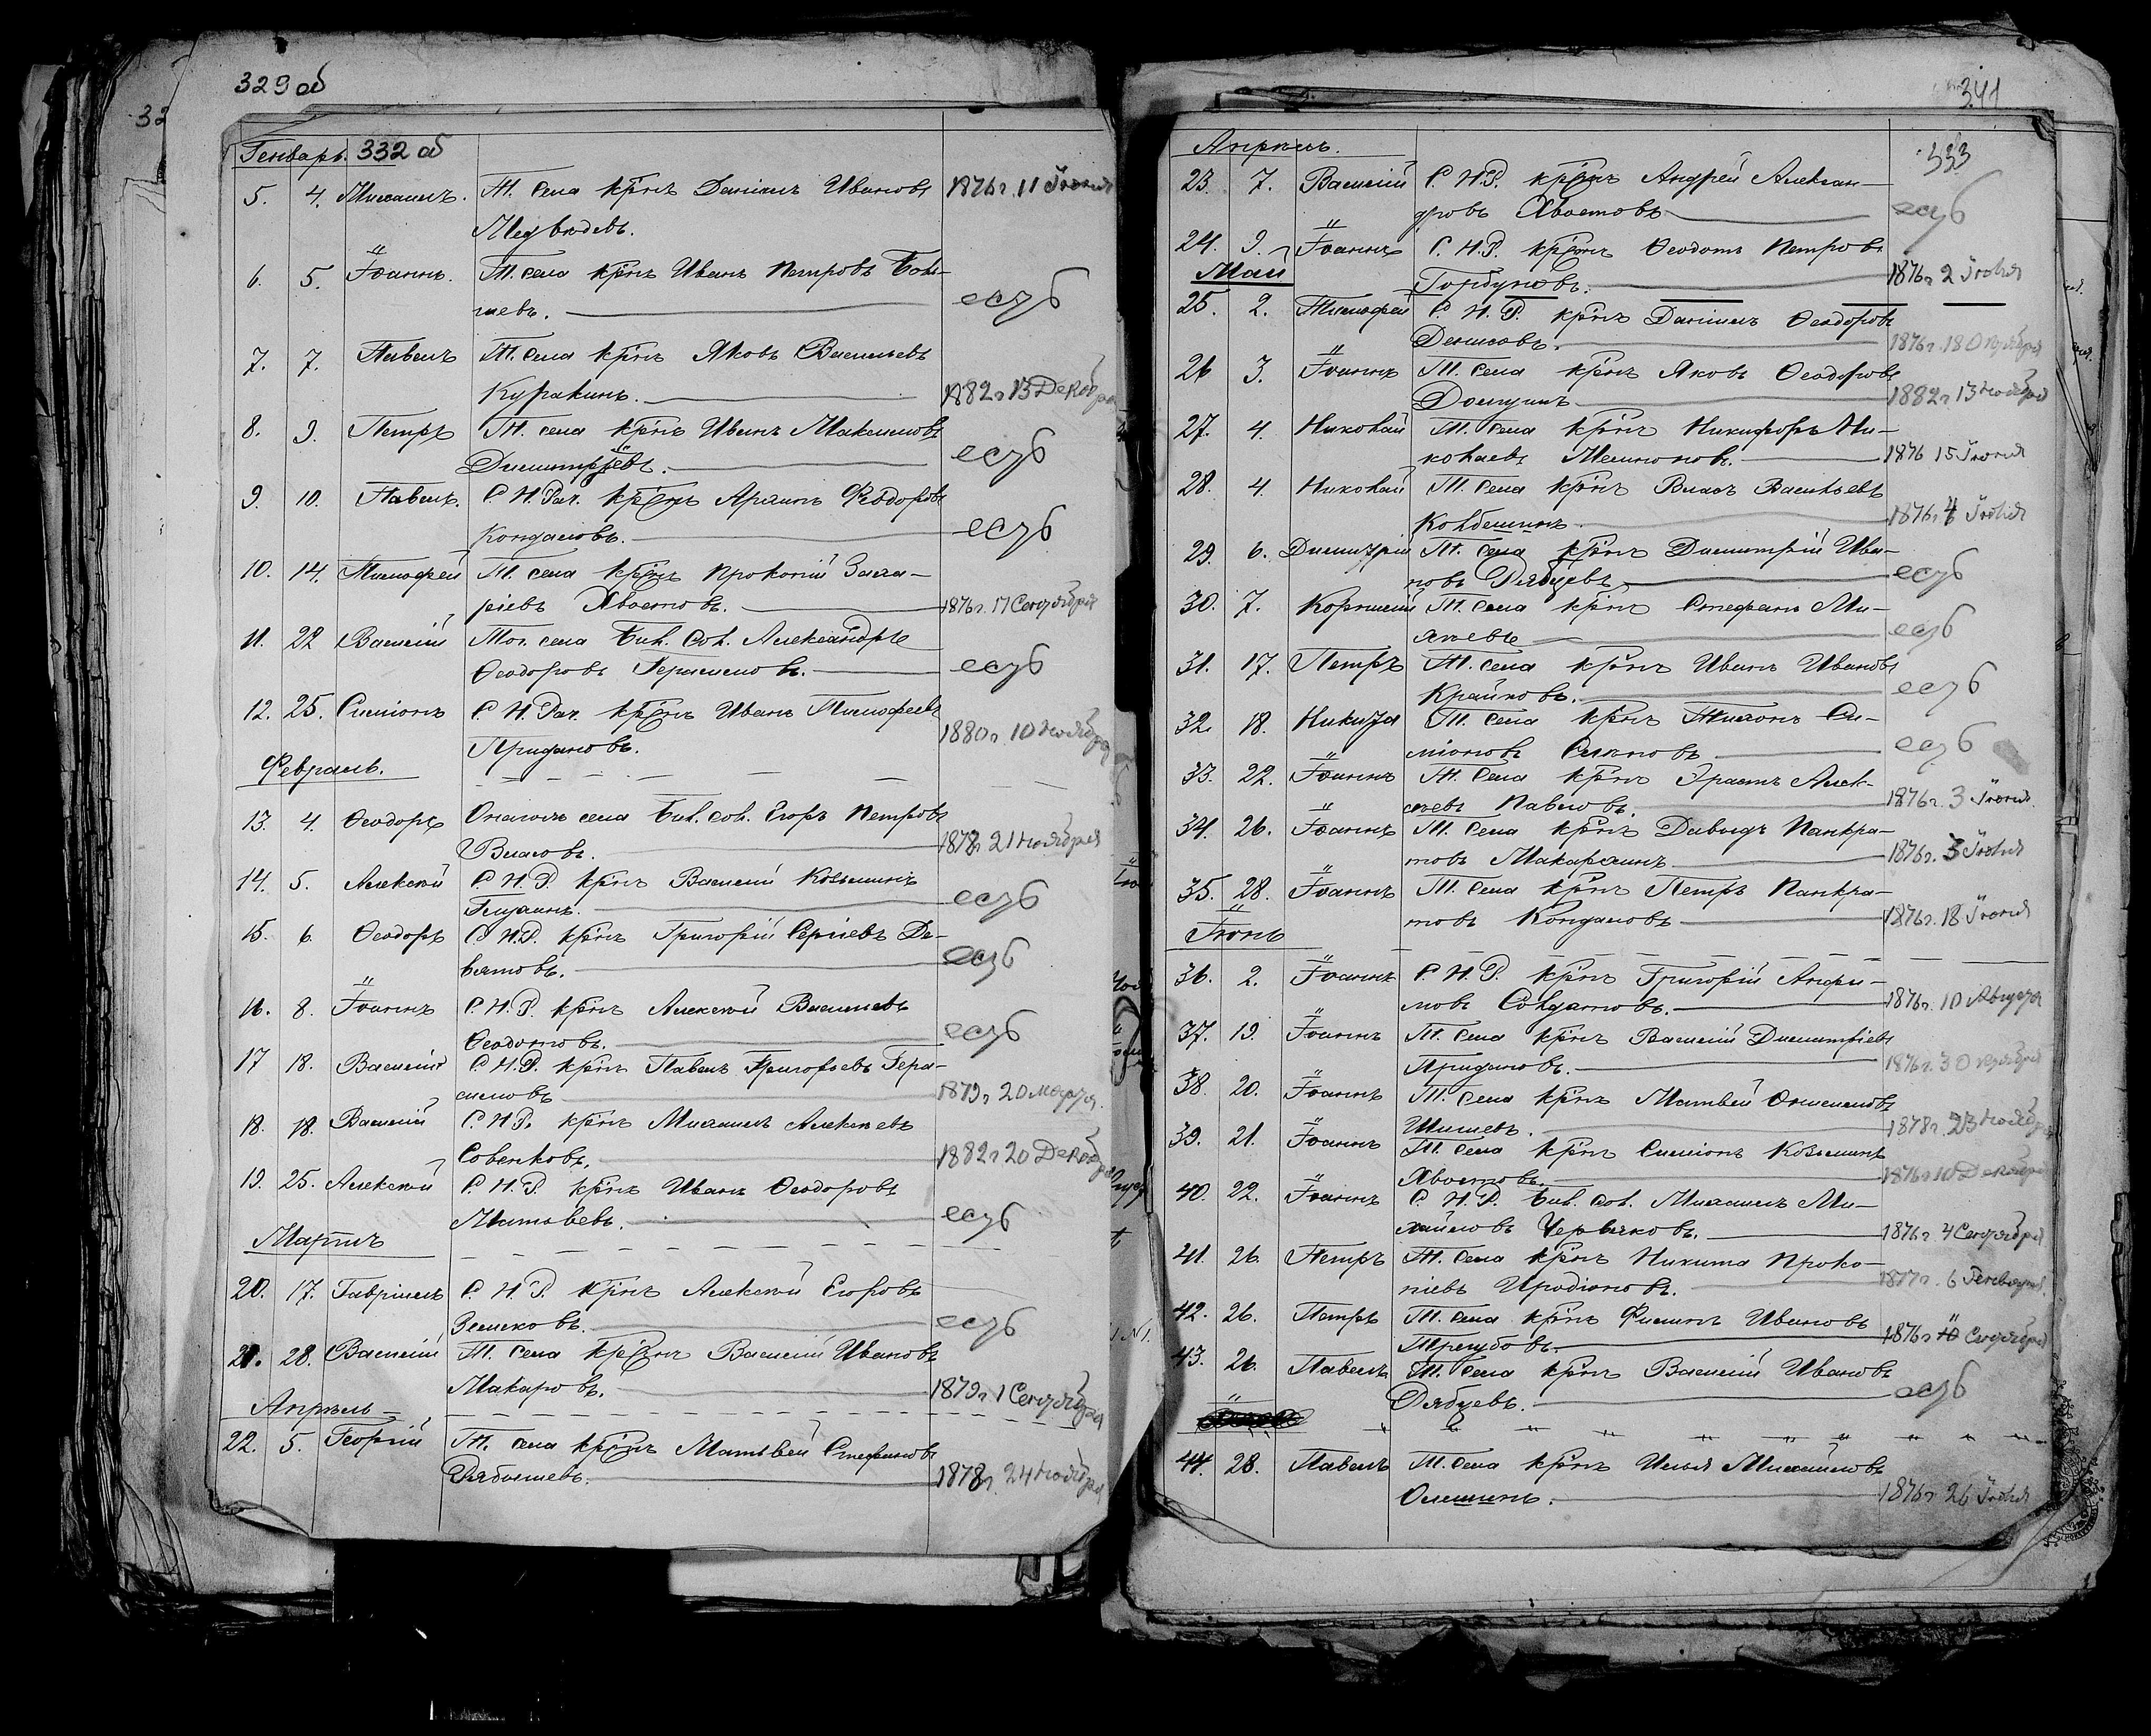 329 об
332 об
Генварь.
5. 4. Михаилъ. Т. села кр-нъ Даніилъ Ивановъ 1876 г. 11 Іюня
Медвѣдевъ.
6. 5. Іоаннъ. Т. села кр-нъ Иванъ Петровъ
есть
7. 7. Павелъ Т. села кр-нъ Яковъ Васильевъ
Куракинъ. 1882 г 13 Декабря
8. 9. Петръ Т. села кр-нъ Иванъ Максимовъ
Димитріевъ. есть
9. 10. Павелъ. С. Н. Рач. кр-нъ Архипъ Ѳеодоровъ
Кондаковъ. есть
10. 14. Тимофей Т. села кр-нъ Прокопій Заха-
ріевъ Хвостовъ. 1876 г. 17 Сентября
11. 22 Василій Тог. села Бил. Сол. Александръ
Ѳеодоровъ Герасимовъ. есть
12. 25. Симіонъ С. Н. Рач. кр-нъ Иванъ Тимофеевъ
Придановъ. 1880 г. 10 Ноября
Февраль.
13. 4. Ѳеодоръ села Бил. сол. Егоръ Петровъ
Власовъ. 1878 г 21 Ноября
14. 5. Алексій С. Н. Р. кр-нъ Василій Козьминъ
есть
15. 6 Ѳеодоръ С. Н. Р. кр-нъ Григорій Сергіевъ Де-
вятовъ. есть
16. 8. Іоаннъ С. Н. Р. кр-нъ Алексій Васильевъ
Ѳеодотовъ. есть
17 18. Василій С. Н. Р. кр-нъ Павелъ Григорьевъ Гера-
симовъ 1879 г 20 марта.
18. 18. Василій С. Н. Р. кр-нъ Михаилъ Алексѣевъ
Совенковъ. 1882 г 20 Декабря
19. 25. Алексій С. Н. Р. кр-нъ Иванъ Ѳеодоровъ
Матвѣевъ. есть
Мартъ
20. 17. Гавріилъ С. Н. Р. кр-нъ Алексій Егоровъ
Земсковъ. есть
21. 28. Василій Т. села кр-нъ Василій Ивановъ
Макаровъ. 1879 г 1 Сентября
Апрѣль
22. 5. Георгій Т. села кр-нъ Матвей Стефановъ
1878 г. 24 Ноября
341
333
Апрѣль.
23. 7. Василій С. Н. Р. кр-нъ Андрей Алексан-
дровъ Хвостовъ есть
24. 9. Іоаннъ С. Н. Р. кр-нъ Ѳеодотъ Петровъ
Горбуновъ. 1876 г 2 Іюля
Май
25. 2. Тимофей С. Н. Р. кр-нъ Даніилъ Ѳеодоровъ
Денисовъ. 1876 г. 18 Октября
26 3. Іоаннъ Т. села кр-нъ Яковъ Ѳеодоровъ
1882 г 13 Ноября
27. 4. Николай Т. села кр-нъ Никифоръ Ни-
колаевъ 1876 15 Іюня
28. 4. Николай Т. села кр-нъ Власъ Васильевъ
Колбешинъ. 1876 г 4 Іюля
29. 6. Димитрій Т. села кр-нъ Димитрій Ива-
новъ Рябцевъ есть
30. 7. Корнилій Т. села кр-нъ Стефанъ Ми-
хѣевъ есть
31. 17. Петръ Т. села кр-нъ Иванъ Ивановъ
Крайновъ. есть
32. 18. Никита Т. села кр-нъ Тихонъ Си-
міоновъ есть
33. 22. Іоаннъ Т. села кр-нъ Эрастъ Алек-
сѣевъ Павловъ. 1876 г. 3 Іюня.
34. 26. Іоаннъ Т. села кр-нъ Давыдъ Панкра-
товъ Макархинъ 1876 г. 3 Іюля
35. 28. Іоаннъ Т. села кр-нъ Петръ Панкра-
товъ Кондаковъ 1876 г. 18 Іюня
Іюнь
36. 2. Іоаннъ С. Н. Р. кр-нъ Григорій Анфи-
мовъ Солдатовъ. 1876 г. 10 Августа
37. 19. Іоаннъ Т. села кр-нъ Василій Димитріевъ
Придановъ. 1876 г. 30 Октября
38. 20. Іоаннъ Т. села кр-нъ Матвей
Шишевъ. 1878 г. 23 Ноября
39. 21. Іоаннъ Т. села кр-нъ Симіонъ Козьминъ
Хвостовъ. 1876 г 10 Декабря
40. 22. Іоаннъ С. Н. Р. Бил. сол. Михаилъ Ми-
хайловъ Червяковъ. 1876 г. 4 Сентября
41. 26. Петръ Т. села кр-нъ Никита Проко-
піевъ Иродіоновъ. 1877 г. 6 Генваря.
42. 26. Петръ Т. села кр-нъ Филипъ Ивановъ
Трегубовъ. 1876 г 10 Сентября
43. 26. Павелъ Т. села кр-нъ Василій Ивановъ
Рябцевъ. есть
44. 28. Павелъ Т. села кр-нъ Илья Михайловъ
Олешинъ. 1876 г. 26 Іюля